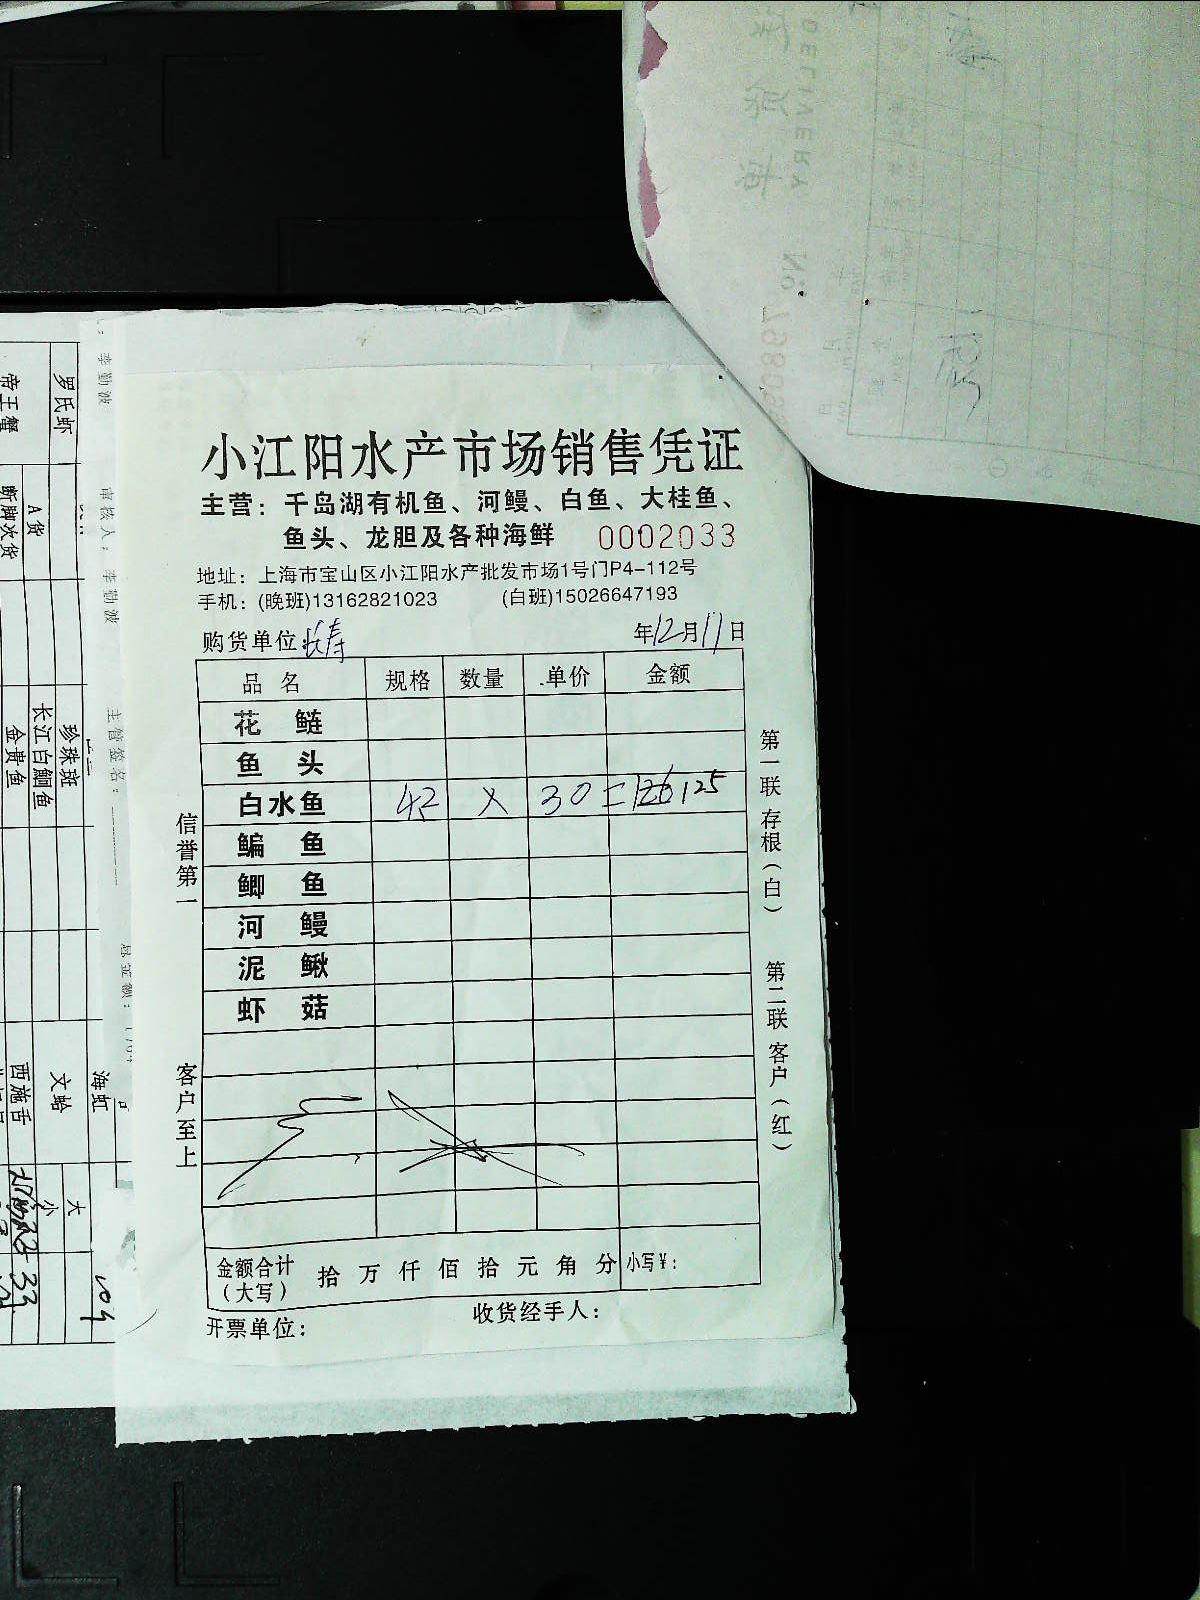 小江阳水产市场销售凭证
主营：千岛湖有机鱼、河鳗、白鱼、大桂鱼、
鱼头、龙胆及各种海鲜 0002033
地址：上海市宝山区小江阳水产批发市场1号门P4-112号
手机：(晚班)13162821023 (白班)15026647193
购货单位：长寿 年12月17日
品名 规格 数量 单价 金额
花鲢
鱼头
白水鱼 42 × 30 =
鳊鱼
鲫鱼
河鳗
泥鳅
虾菇
金额合计（大写） 拾万仟佰拾元角分 小写¥：
开票单位： 收货经手人：
信誉第一
客户至上
第一联存根（白）
第二联客户（红）
罗氏虾
帝王蟹
A货
断脚次货
珍珠斑
长江白鮰鱼
金贵鱼
海虹
文蛤
西施舌
大
小
李勤波
审核人：李勤波
主管签名：
DELIVERY